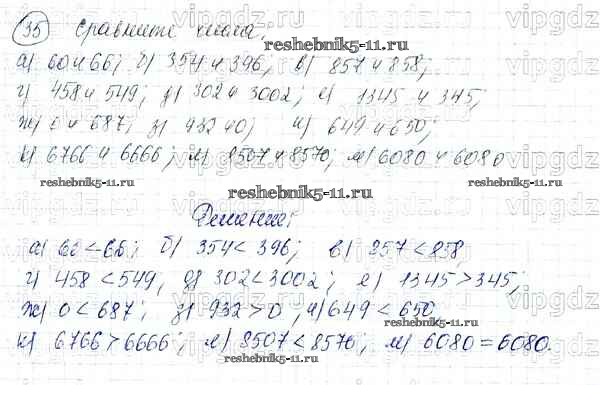 35 Сравните числа.
reshebnik5-11.ru
а) 60 и 66; б) 354 и 396; в) 857 и 858;
г) 458 и 549; д) 302 и 3002; е) 1345 и 345;
ж) 0 и 687; з) 932 и 0; и) 649 и 650;
к) 6766 и 6666; л) 8507 и 8570; м) 6080 и 6080
reshebnik5-11.ru reshebnik5-11.ru reshebnik5-11.ru
Решение:
а) 60 < 66; б) 354 < 396; в) 857 < 858
г) 458 < 549; д) 302 < 3002; е) 1345 > 345;
ж) 0 < 687; з) 932 > 0; и) 649 < 650
reshebnik5-11.ru
к) 6766 > 6666; л) 8507 < 8570; м) 6080 = 6080.
reshebnik5-11.ru